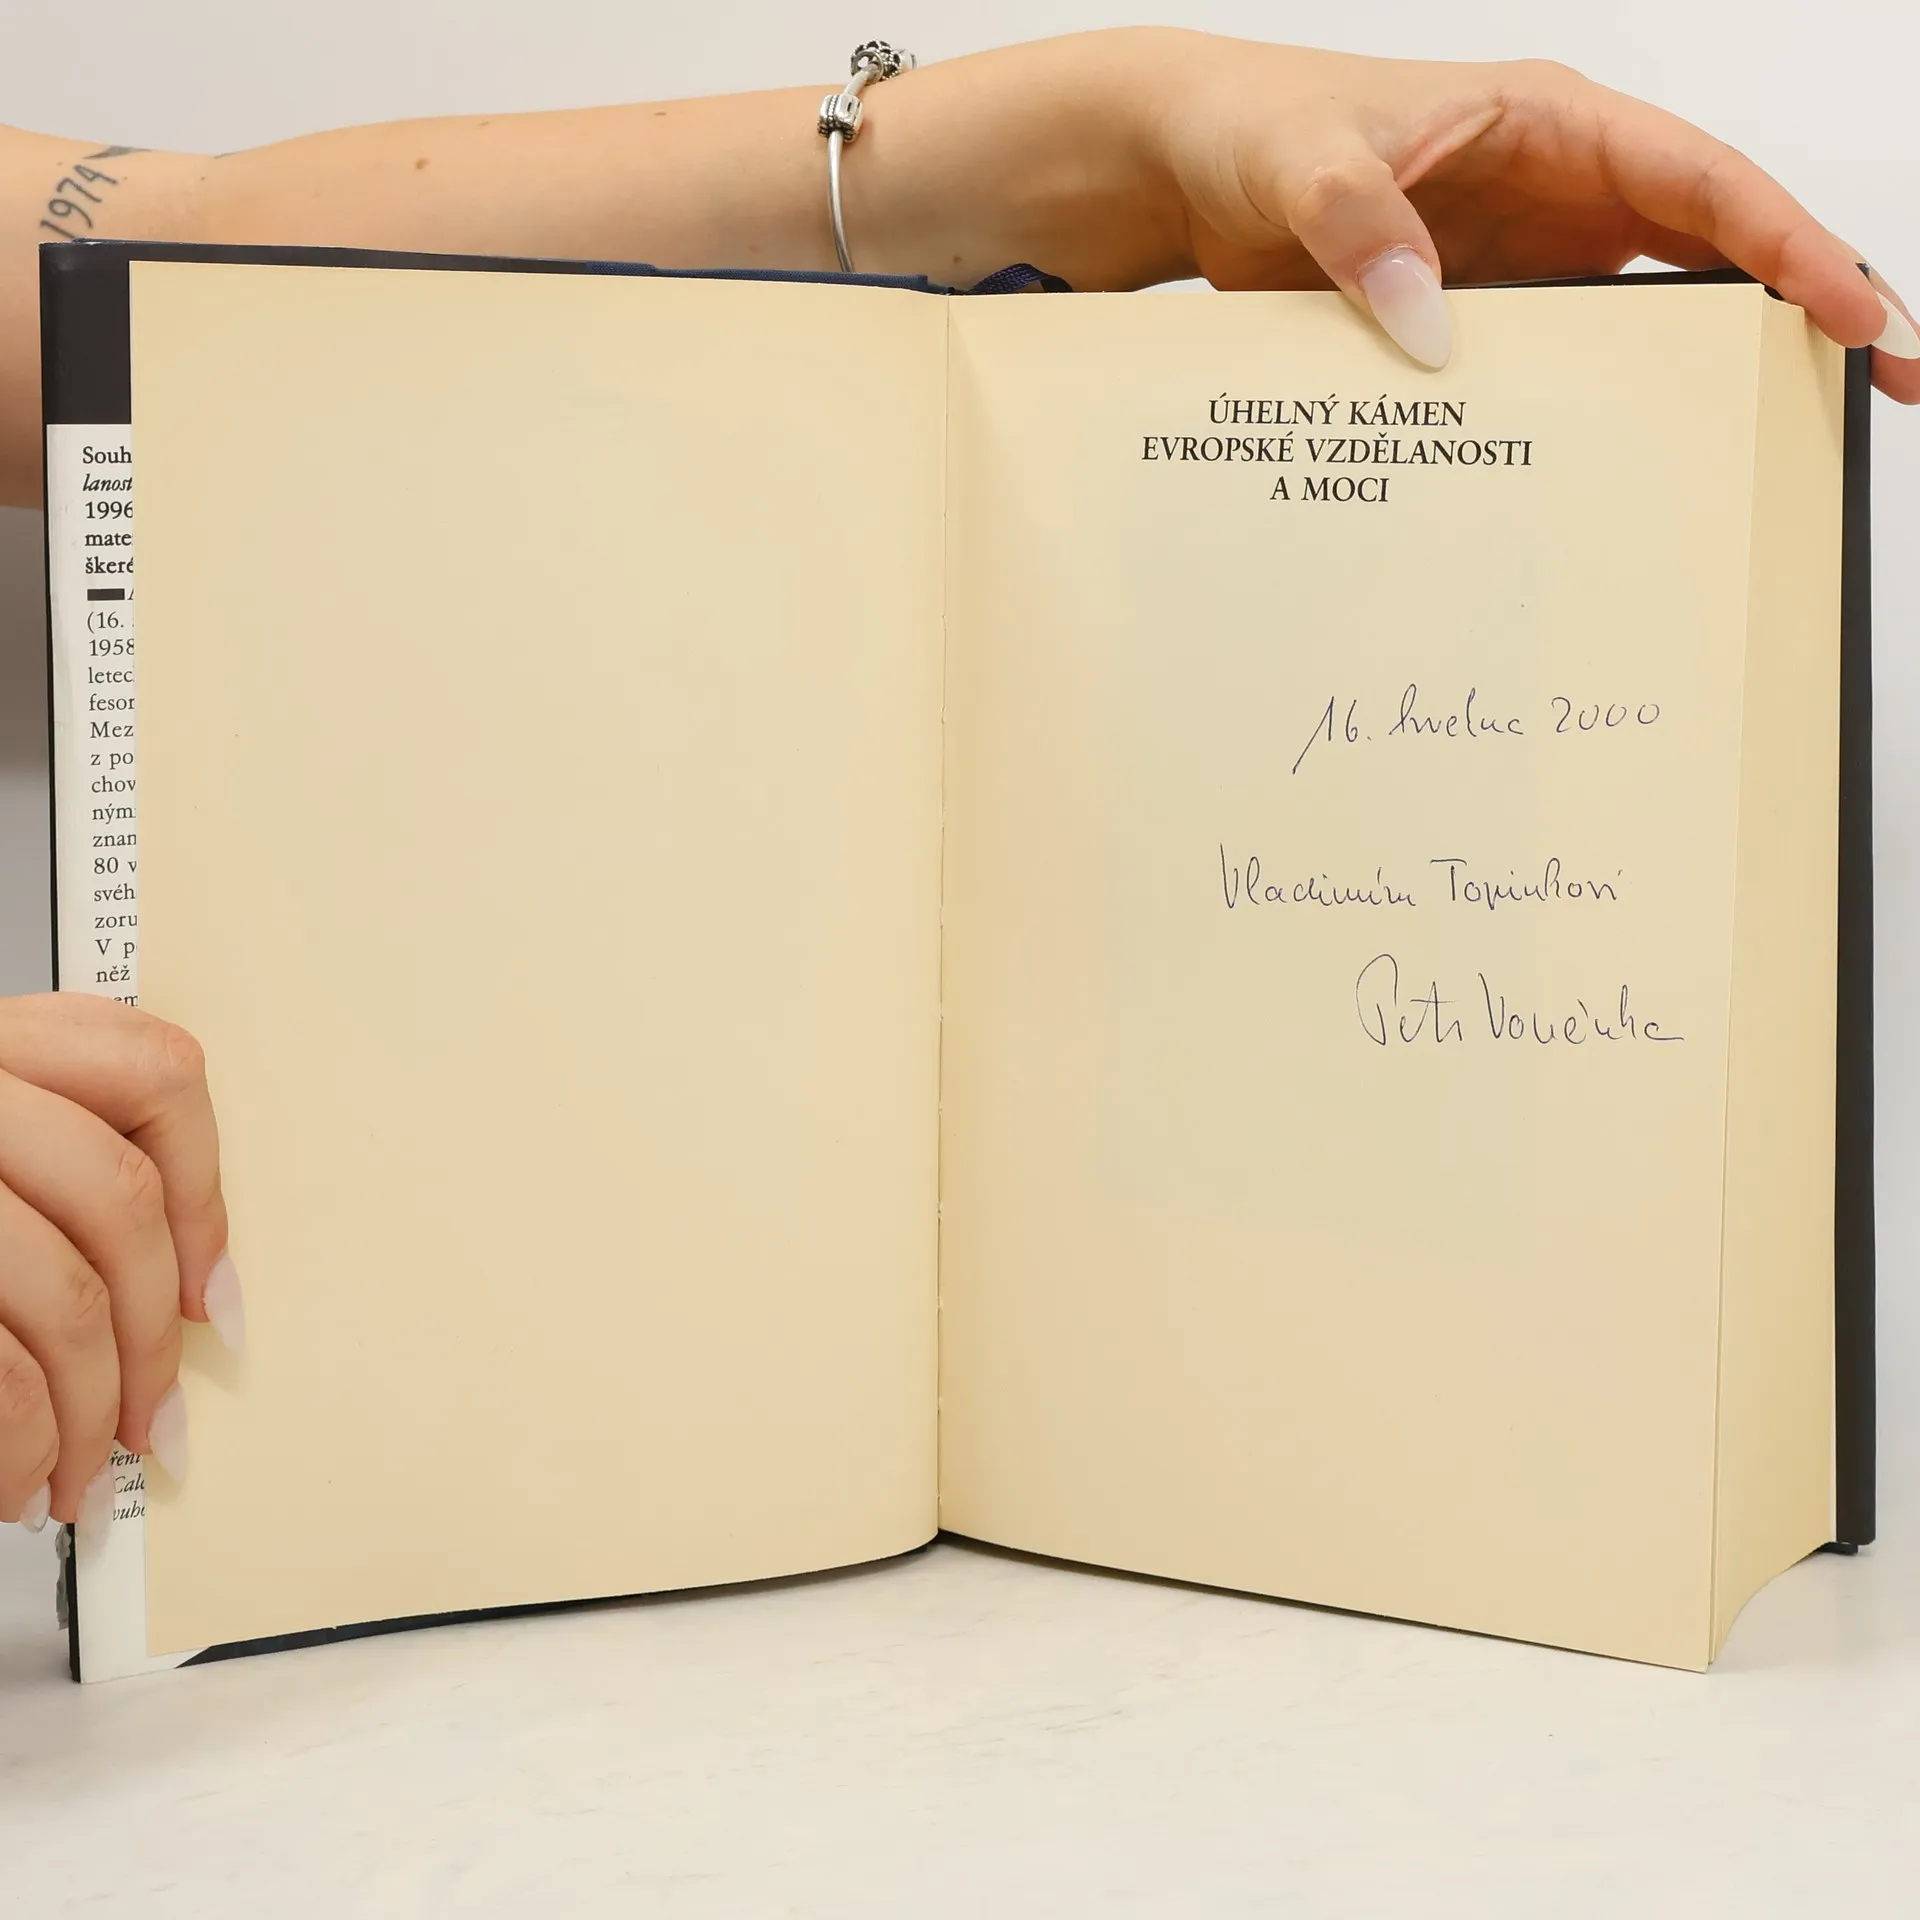 1974
Souh
lanost
1996
mate
škeré
(16.
1958
letec
fesor
Mez
z po
chov
ným
znam
80 v
svéh
zoru
V p
něž
Cald
vuho
ÚHELNÝ KÁMEN
EVROPSKÉ VZDĚLANOSTI
A MOCI
16. května 2000
Vladimíru Topinkovi
Petr Vopěnka